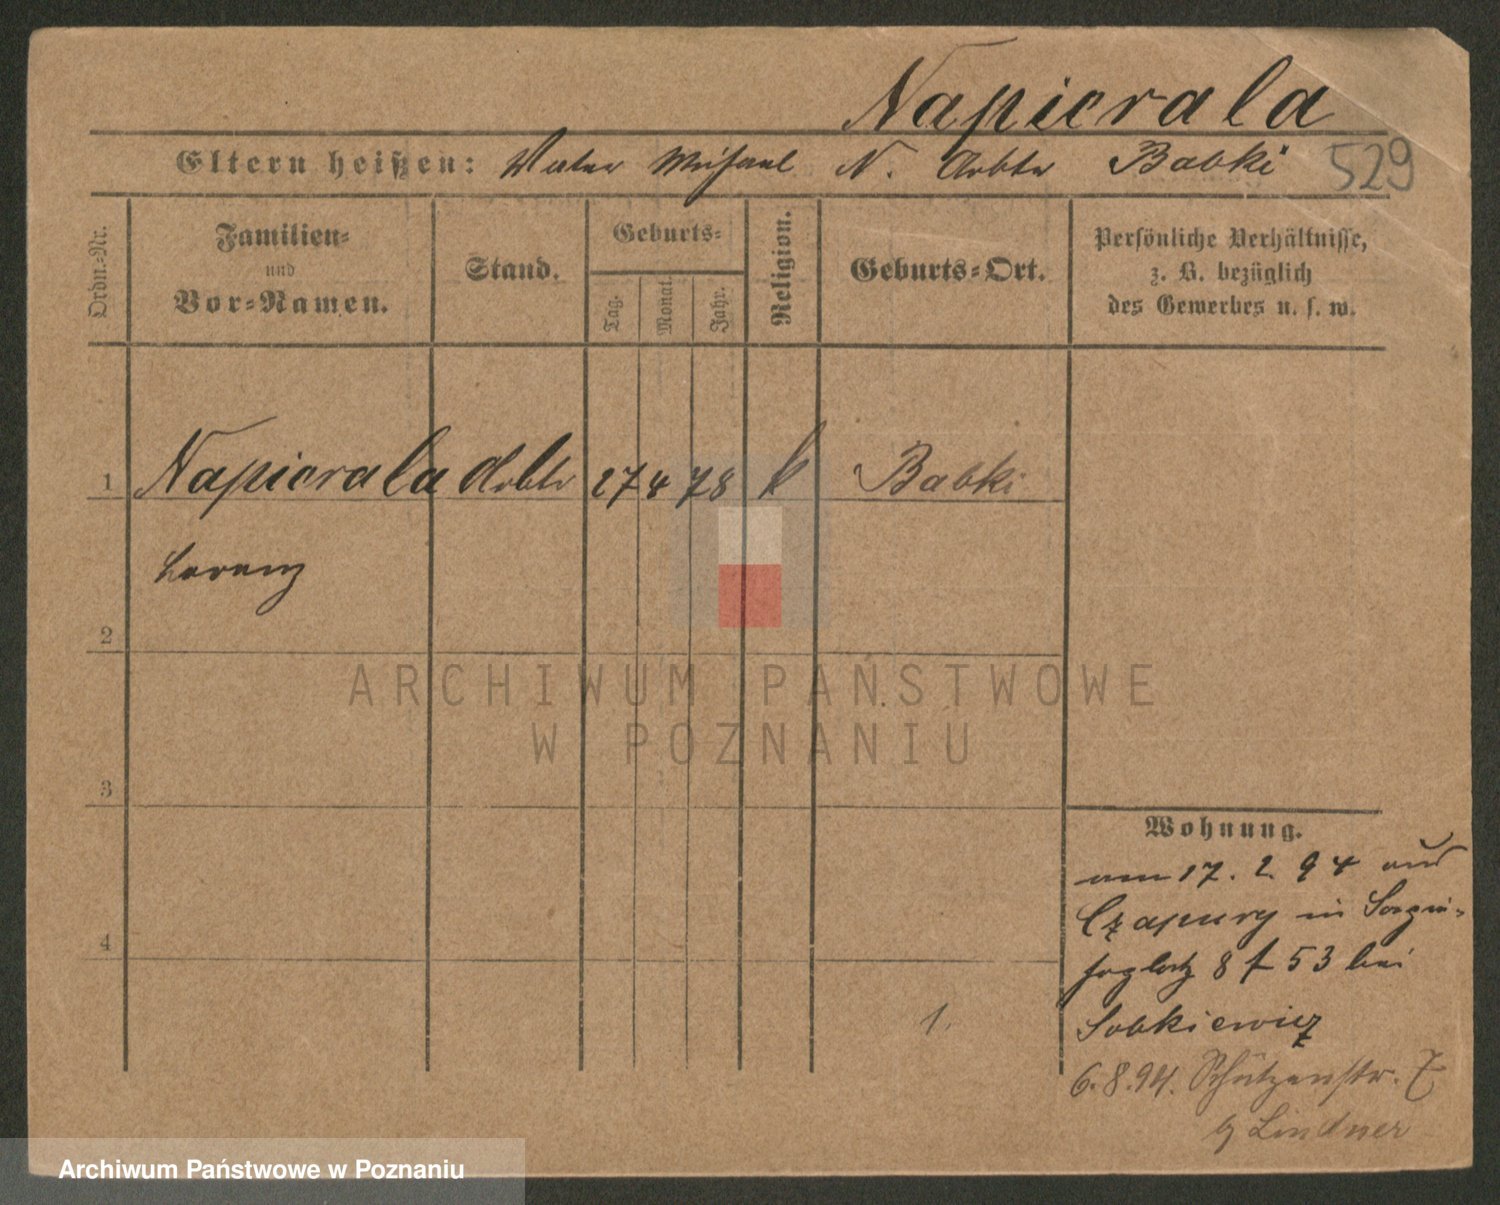 Napierala
Eltern heißen: Vater Michael N. Arbtr Babki 529
Ordn.-Nr.
Familien-
und
Vor-Namen.
Stand.
Geburts-
Tag.
Monat.
Jahr.
Religion.
Geburts-Ort.
Persönliche Verhältnisse,
z. B. bezüglich
des Gewerbes u. s. w.
1 Napierala Arbtr 27 4 78 k Babki
Lorenz
2
ARCHIWUM PAŃSTWOWE
W POZNANIU
3
Wohnung.
am 17. 2. 94 aus
Czapury in
8 f 53 bei
4
Sobkiewicz
1.
6.8.94. Schützenstr. 7
b Lindner
Archiwum Państwowe w Poznaniu